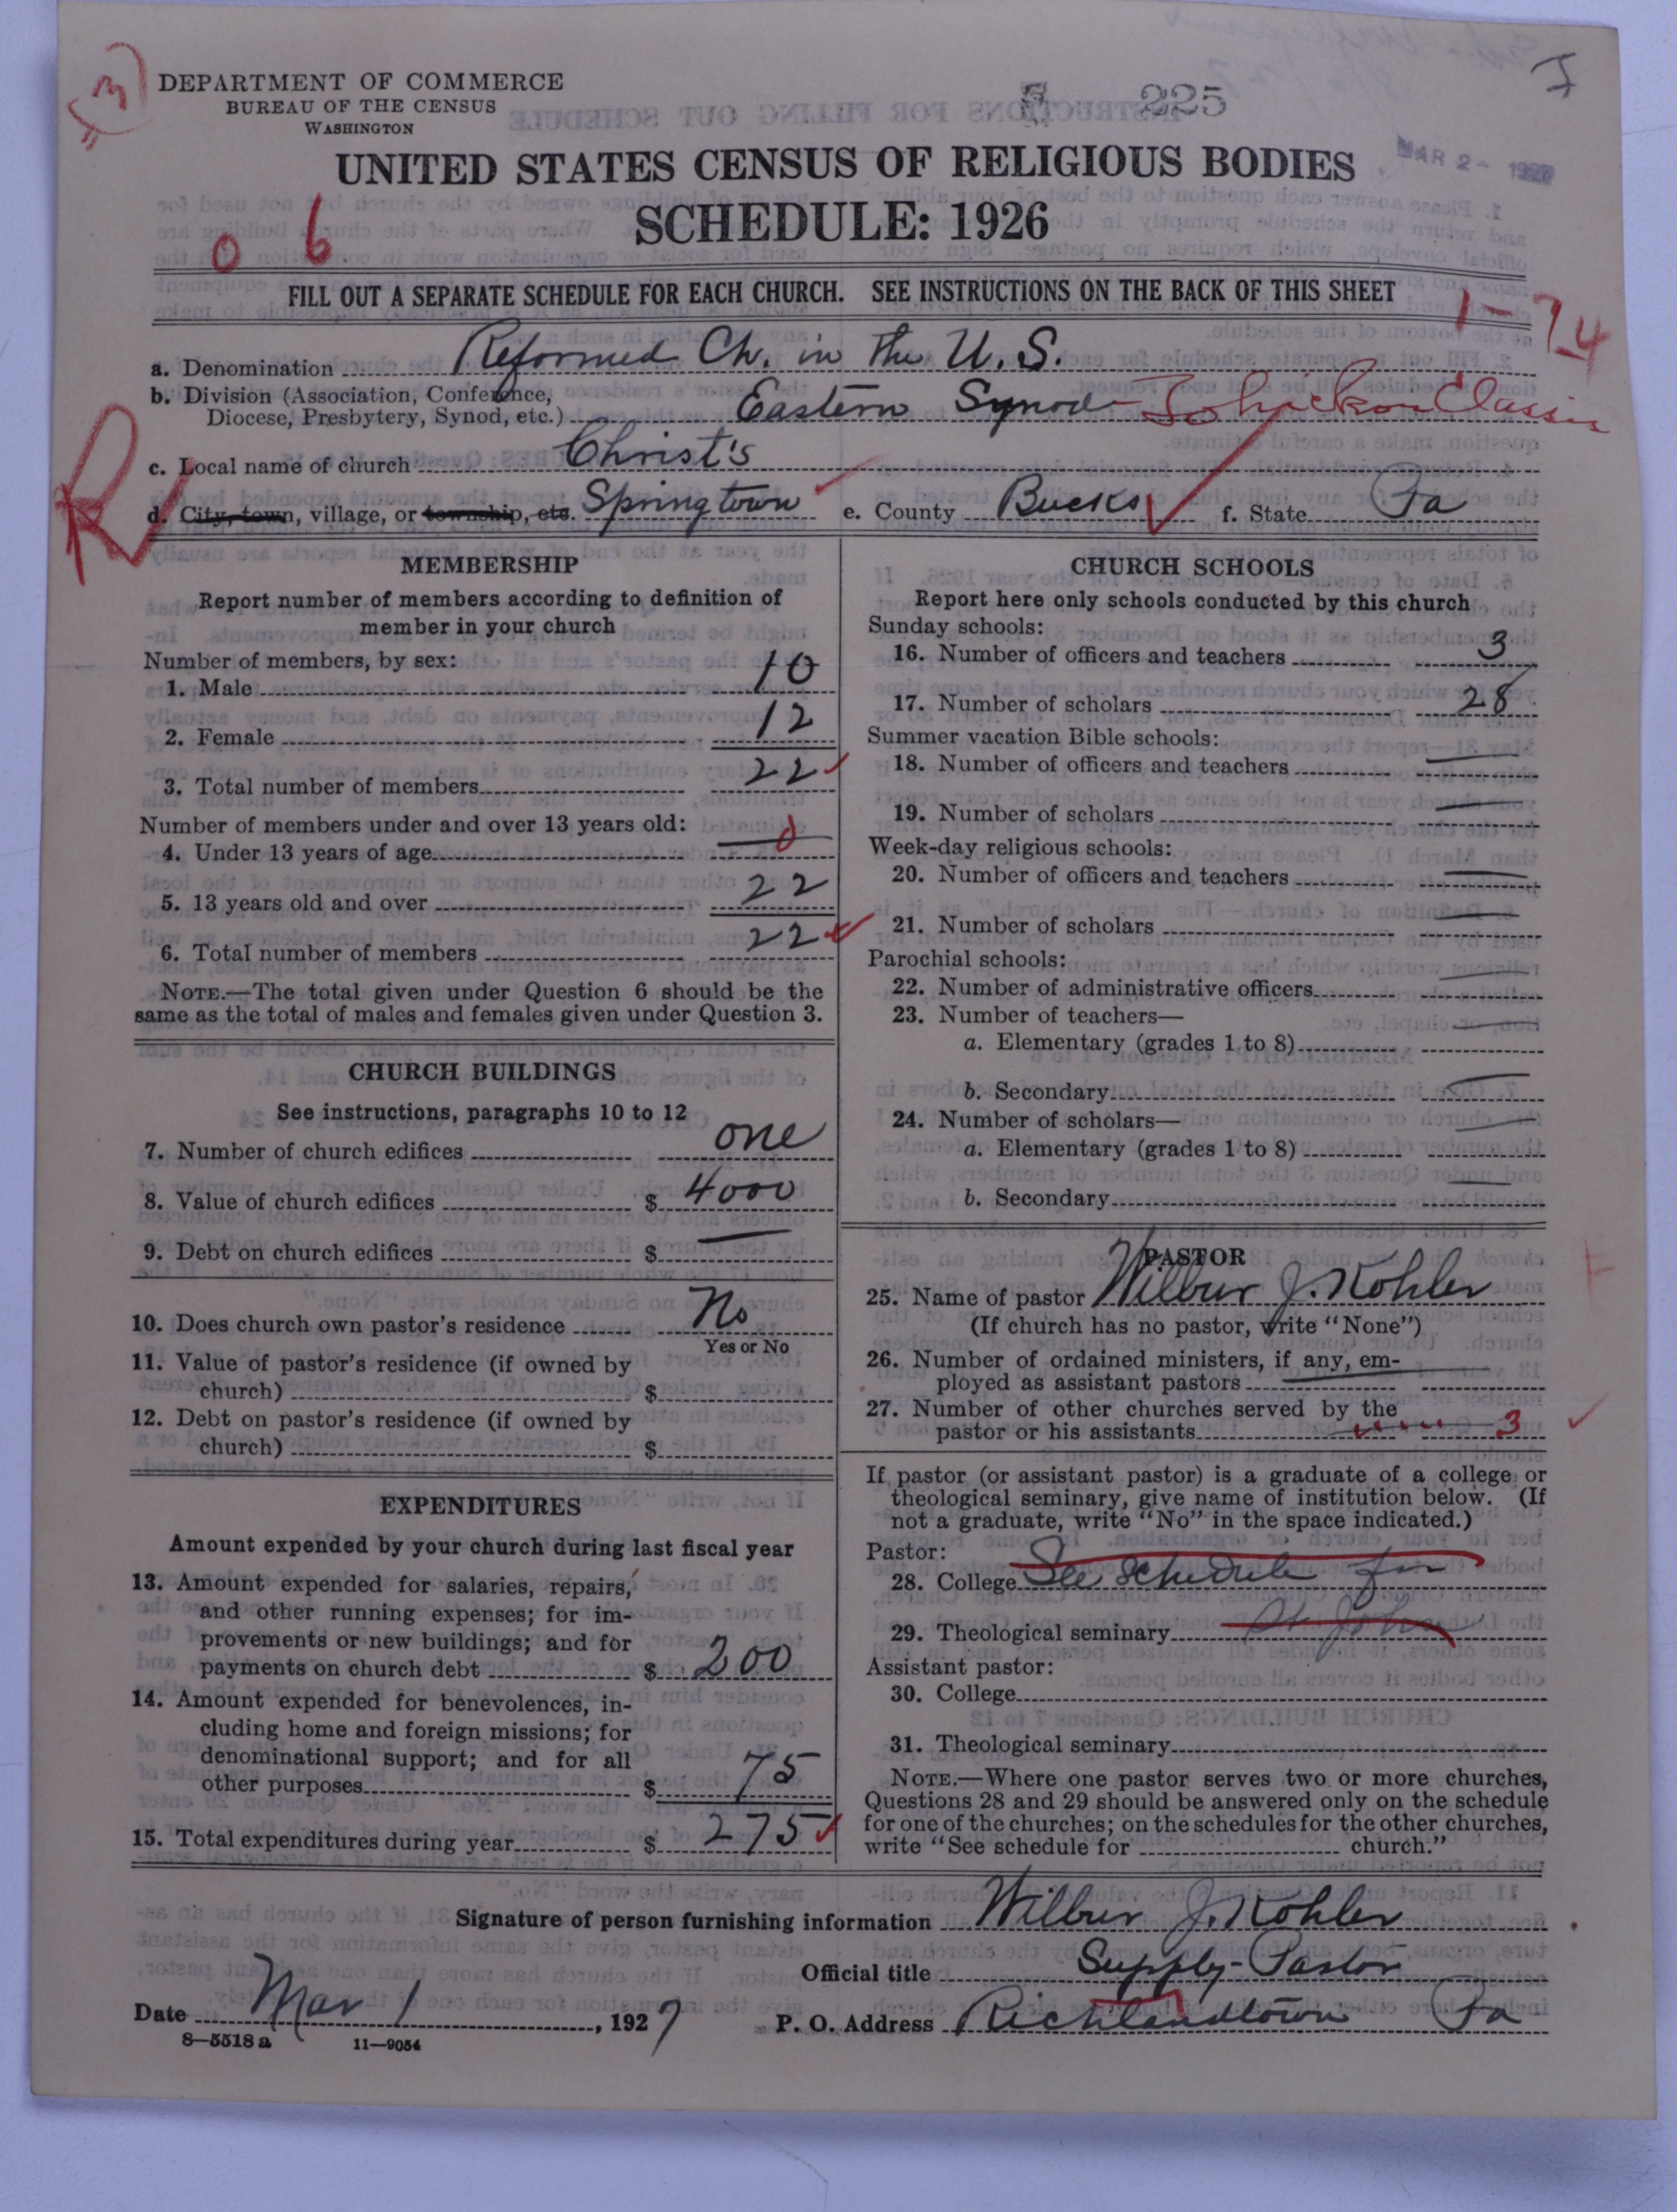 (3)
DEPARTMENT OF COMMERCE
BUREAU OF THE CENSUS
WASHINGTON
225
I
MAR 2 - 1927
UNITED STATES CENSUS OF RELIGIOUS BODIES
SCHEDULE: 1926
0 6
FILL OUT A SEPARATE SCHEDULE FOR EACH CHURCH. SEE INSTRUCTIONS ON THE BACK OF THIS SHEET
1-74
a. Denomination Reformed Ch. in the U.S.
b. Division (Association, Conference,
Diocese, Presbytery, Synod, etc.) Eastern Synod - Tohickon Classis
c. Local name of church Christ's
R
d. City, town, village, or township, etc. Springtown e. County Bucks f. State Pa
MEMBERSHIP
Report number of members according to definition of
member in your church
Number of members, by sex:
1. Male 10
2. Female 12
3. Total number of members 22
Number of members under and over 13 years old:
4. Under 13 years of age 0
5. 13 years old and over 22
6. Total number of members 22
NOTE.—The total given under Question 6 should be the
same as the total of males and females given under Question 3.
CHURCH BUILDINGS
See instructions, paragraphs 10 to 12
7. Number of church edifices one
8. Value of church edifices $ 4000
9. Debt on church edifices $ —
10. Does church own pastor's residence No
Yes or No
11. Value of pastor's residence (if owned by
church) $
12. Debt on pastor's residence (if owned by
church) $
EXPENDITURES
Amount expended by your church during last fiscal year
13. Amount expended for salaries, repairs,
and other running expenses; for im-
provements or new buildings; and for
payments on church debt $ 200
14. Amount expended for benevolences, in-
cluding home and foreign missions; for
denominational support; and for all
other purposes $ 75
15. Total expenditures during year $ 275
CHURCH SCHOOLS
Report here only schools conducted by this church
Sunday schools:
16. Number of officers and teachers 3
17. Number of scholars 28
Summer vacation Bible schools:
18. Number of officers and teachers —
19. Number of scholars —
Week-day religious schools:
20. Number of officers and teachers —
21. Number of scholars —
Parochial schools:
22. Number of administrative officers —
23. Number of teachers—
a. Elementary (grades 1 to 8) —
b. Secondary —
24. Number of scholars—
a. Elementary (grades 1 to 8) —
b. Secondary —
PASTOR
25. Name of pastor Wilbur J. Kohler
(If church has no pastor, write "None")
26. Number of ordained ministers, if any, em-
ployed as assistant pastors —
27. Number of other churches served by the
pastor or his assistants 3
If pastor (or assistant pastor) is a graduate of a college or
theological seminary, give name of institution below. (If
not a graduate, write "No" in the space indicated.)
Pastor:
28. College See schedule for
29. Theological seminary St John
Assistant pastor:
30. College
31. Theological seminary
NOTE.—Where one pastor serves two or more churches,
Questions 28 and 29 should be answered only on the schedule
for one of the churches; on the schedules for the other churches,
write "See schedule for church."
Signature of person furnishing information Wilbur J. Kohler
Official title Supply-Pastor
Date Mar 1, 1927 P. O. Address Richlandtown Pa
8—5518 a 11—9054